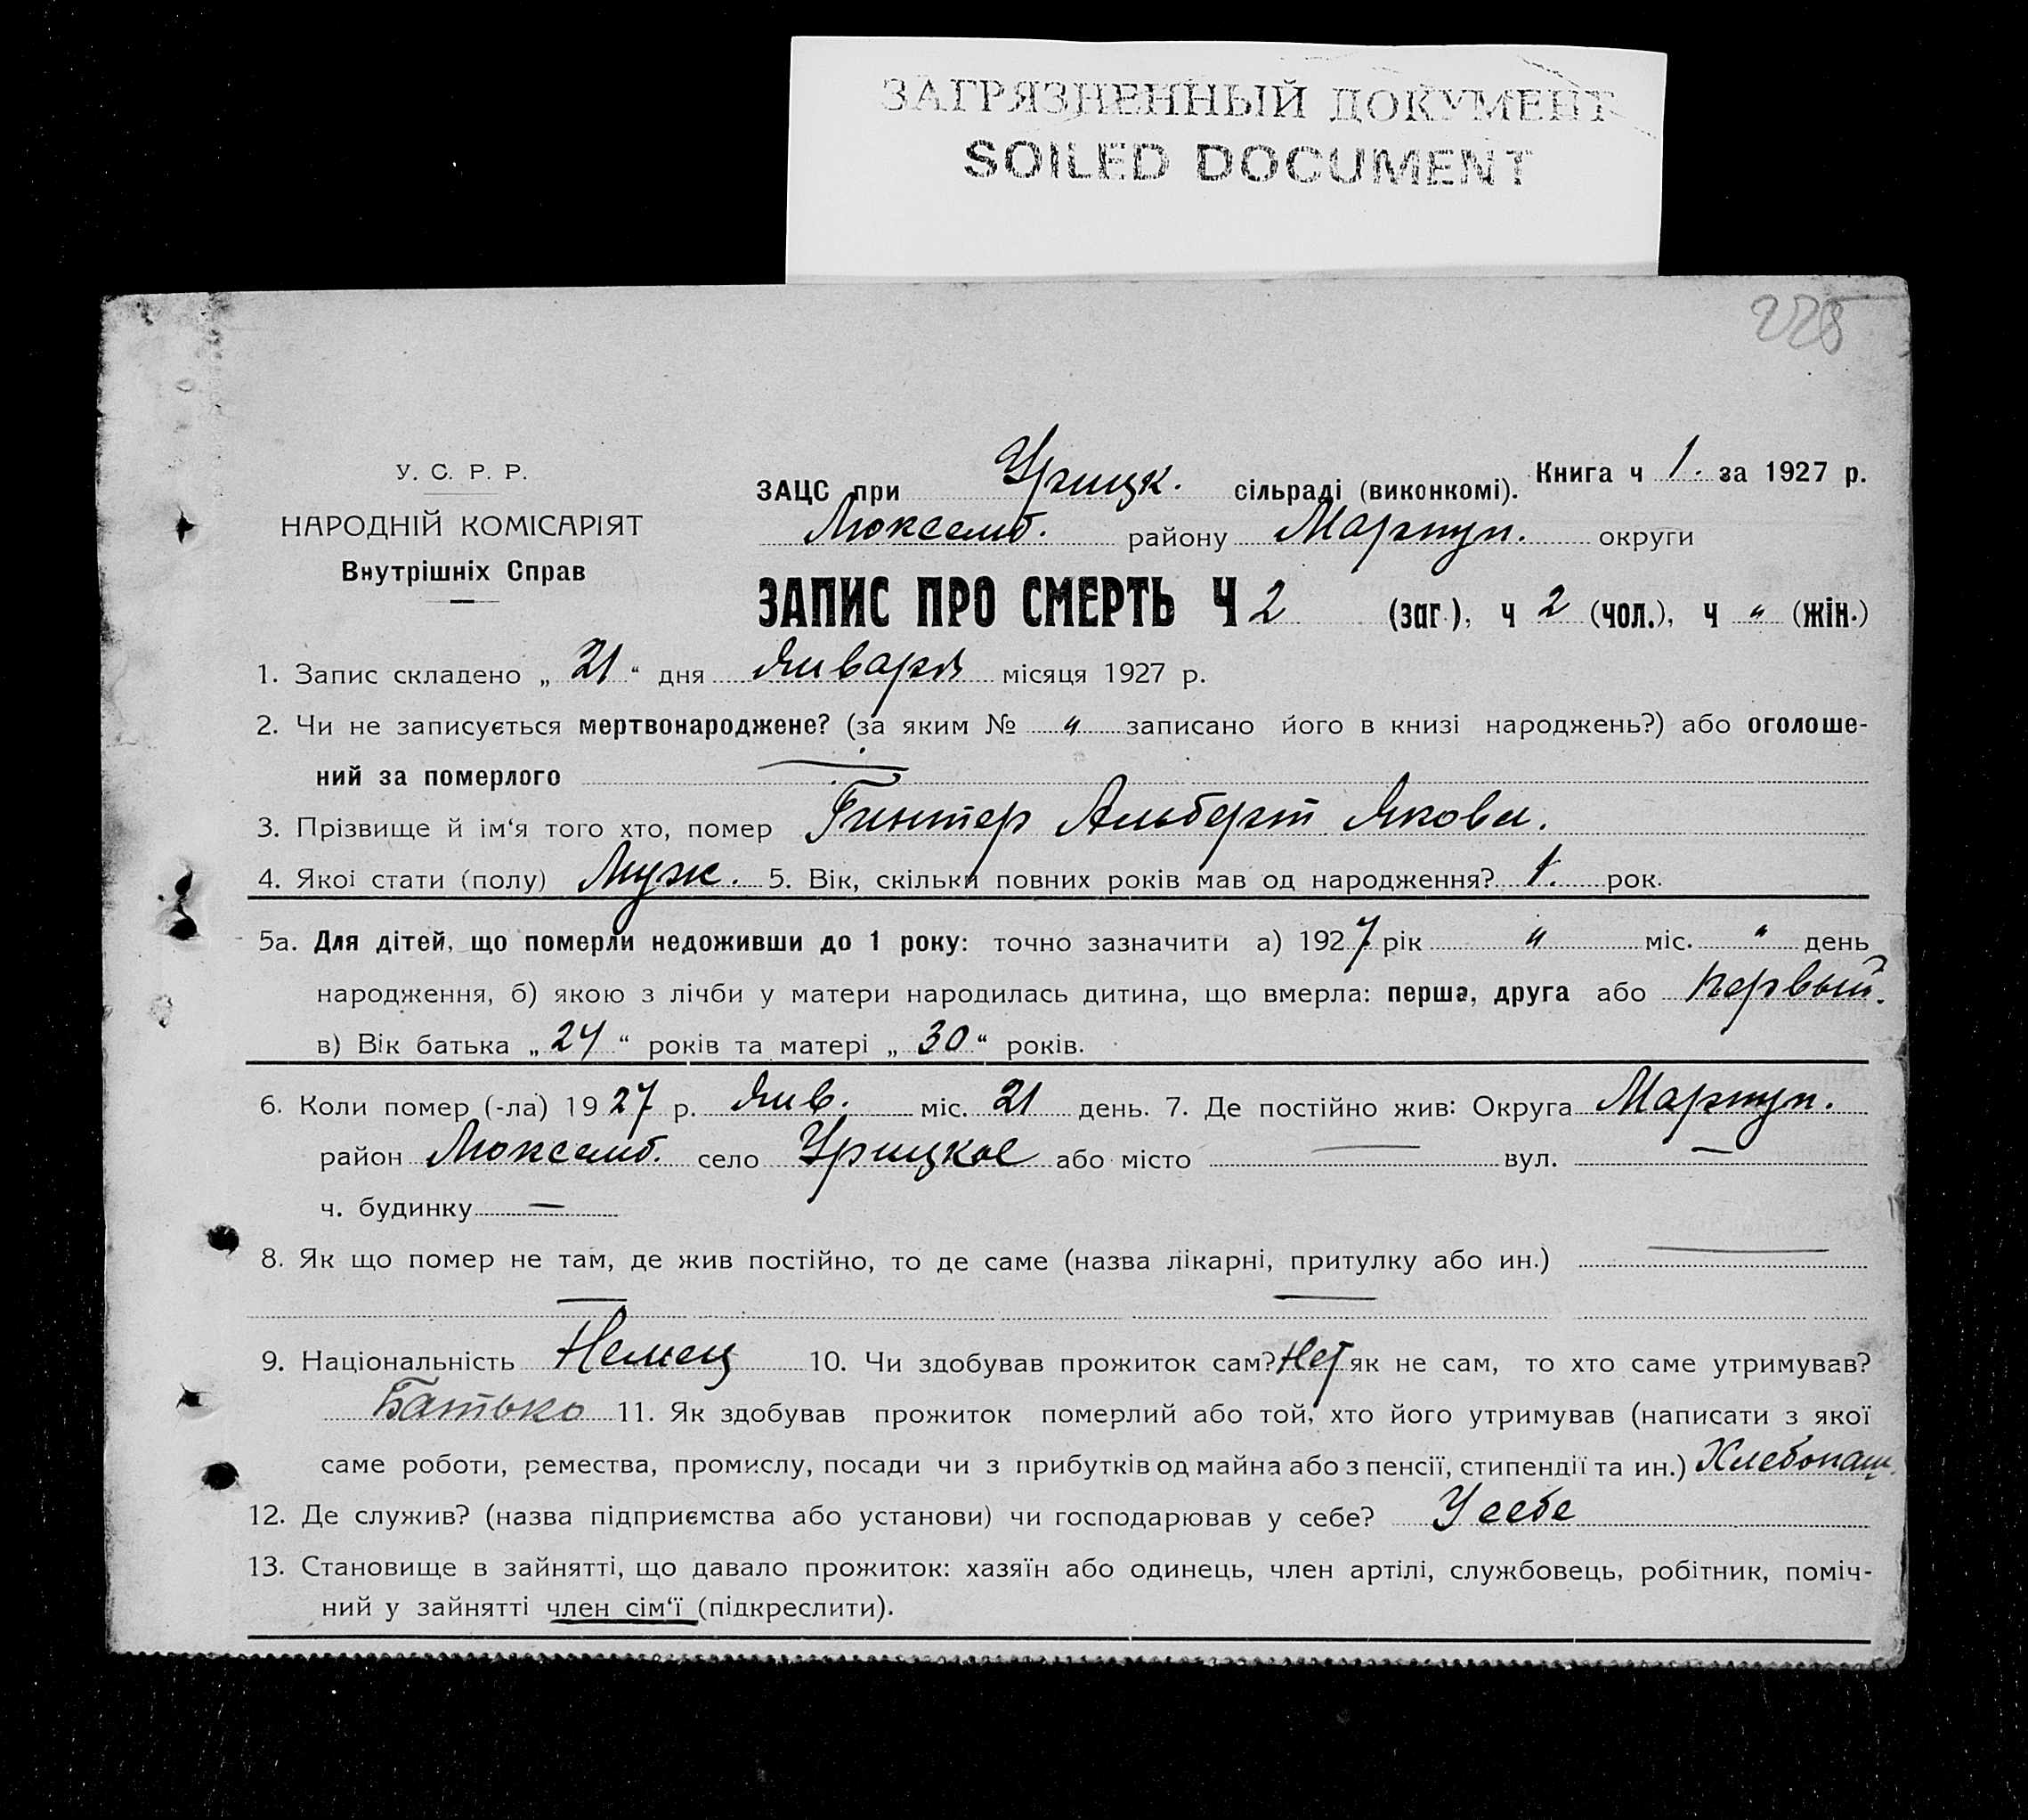 ЗАГРЯЗНЕННЫЙ ДОКУМЕНТ
SOILED DOCUMENT
228
У. С. Р. Р.
НАРОДНІЙ КОМІСАРІЯТ
Внутрішніх Справ
ЗАЦС при Урицк. сільраді (виконкомі). Книга ч 1. за 1927 р.
Люксемб. району Мариуп. округи
ЗАПИС ПРО СМЕРТЬ Ч 2 (заг.), ч 2 (чол.), ч " (жін.)
1. Запис складено „ 21 " дня Января місяця 1927 р.
2. Чи не записується мертвонароджене? (за яким № " записано його в книзі народжень?) або оголоше-
ний за померлого —
3. Прізвище й ім'я того хто, помер Гинтер Альберт Яковл.
4. Якоі стати (полу) Муж. 5. Вік, скільки повних років мав од народження? 1. рок.
5а. Для дітей, що померли недоживши до 1 року: точно зазначити а) 1927 рік " міс. " день
народження, б) якою з лічби у матери народилась дитина, що вмерла: перша, друга або первый.
в) Вік батька „ 24 " років та матері „ 30 " років.
6. Коли помер (-ла) 1927 р. Янв. міс. 21 день. 7. Де постійно жив: Округа Мариуп.
район Люксемб. село Урицкое або місто — вул. —
ч. будинку —
8. Як що помер не там, де жив постійно, то де саме (назва лікарні, притулку або ин.) —
— —
9. Національність Немец 10. Чи здобував прожиток сам? Нет як не сам, то хто саме утримував?
Батько 11. Як здобував прожиток померлий або той, хто його утримував (написати з якої
саме роботи, ремества, промислу, посади чи з прибутків од майна або з пенсії, стипендії та ин.) Хлебопаш.
12. Де служив? (назва підприємства або установи) чи господарював у себе? У себе
13. Становище в зайнятті, що давало прожиток: хазяїн або одинець, член артілі, службовець, робітник, поміч-
ний у зайнятті член сім'ї (підкреслити).